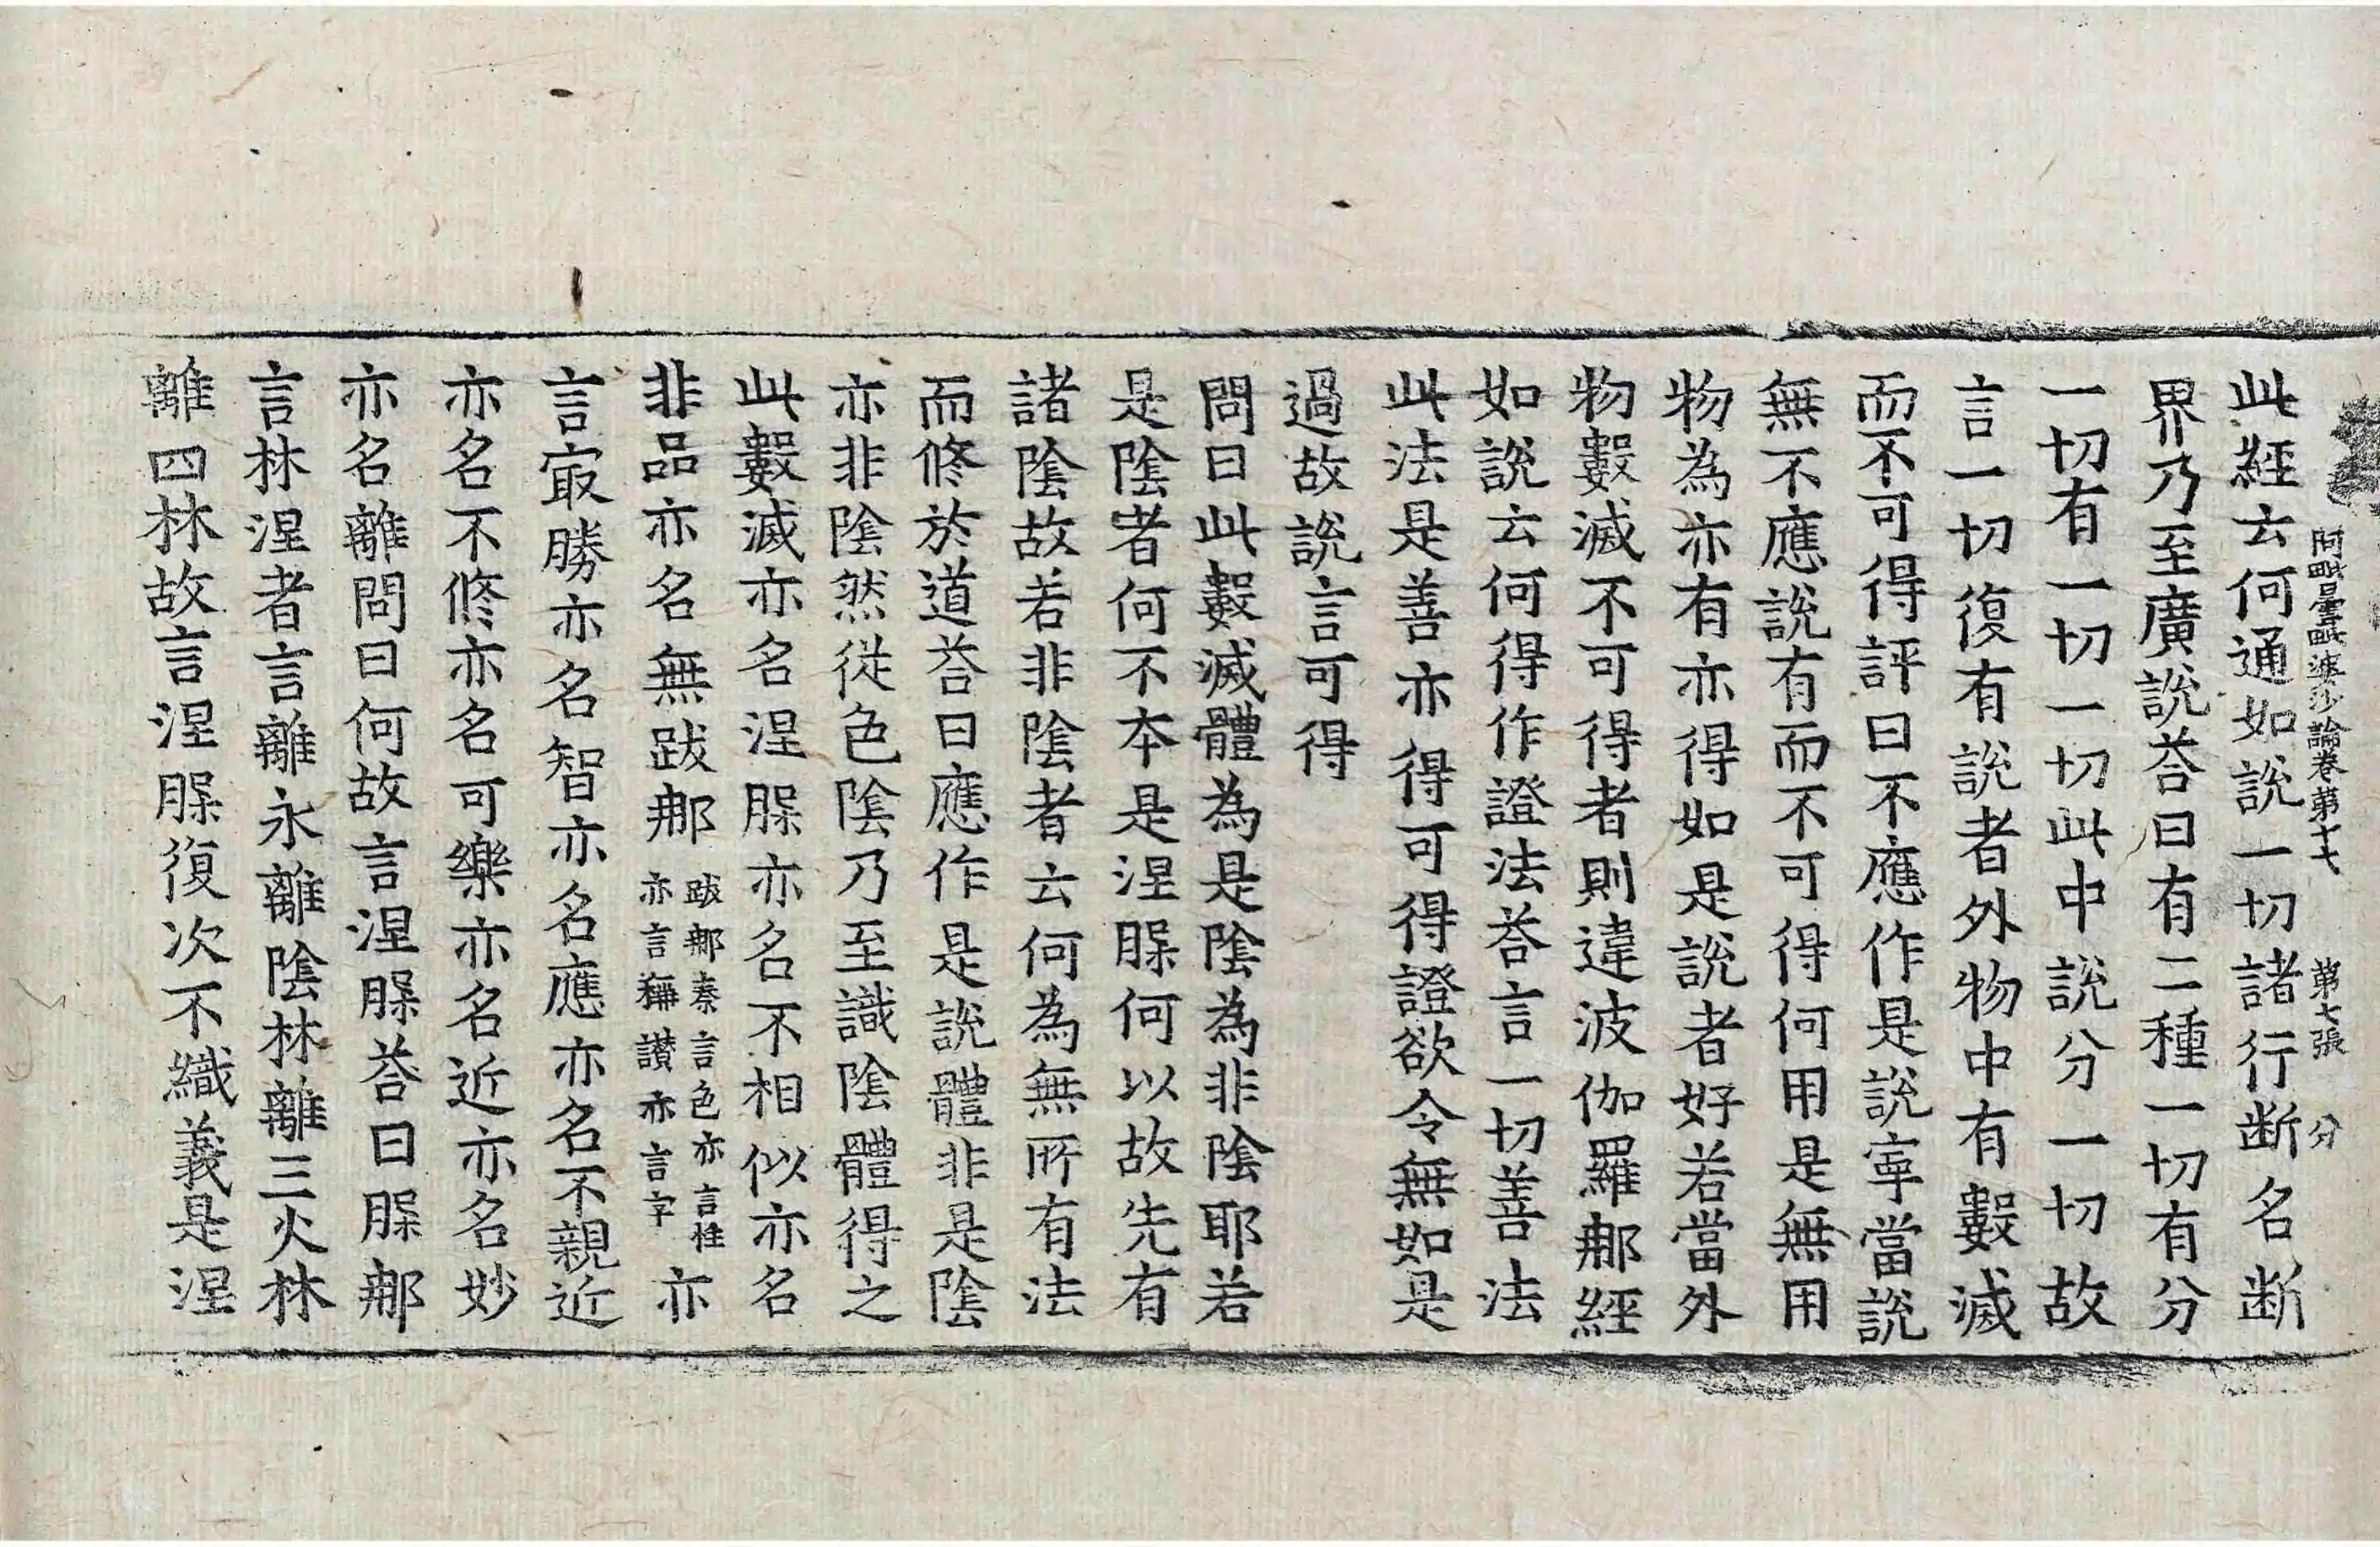 阿毗曇毗婆沙論卷第十七 第七張 分
此經云何通如說一切諸行断名断
界乃至廣說荅曰有二種一切有分
一切有一切一切此中說分一切故
言一切復有說者外物中有數滅
而不可得評曰不應作是說寧當說
無不應說有而不可得何用是無用
物為亦有亦得如是說者好若當外
物數滅不可得者則違波伽羅那經
如說云何得作證法荅言一切善法
此法是善亦得可得證欲令無如是
過故說言可得
問曰此數滅體為是陰為非陰耶若
是陰者何不本是涅槃何以故先有
諸陰故若非陰者云何為無所有法
而修於道荅曰應作是說體非是陰
亦非陰然從色陰乃至識陰體得之
此數滅亦名涅槃亦名不相似亦名
非品亦名無跋那 跋那秦言色亦言性 亦言稱讃亦言字 亦
言㝡勝亦名智亦名應亦名不親近
亦名不修亦名可樂亦名近亦名妙
亦名離問曰何故言涅槃荅曰槃那
言林涅者言離永離陰林離三火林
離四林故言涅槃復次不織義是涅